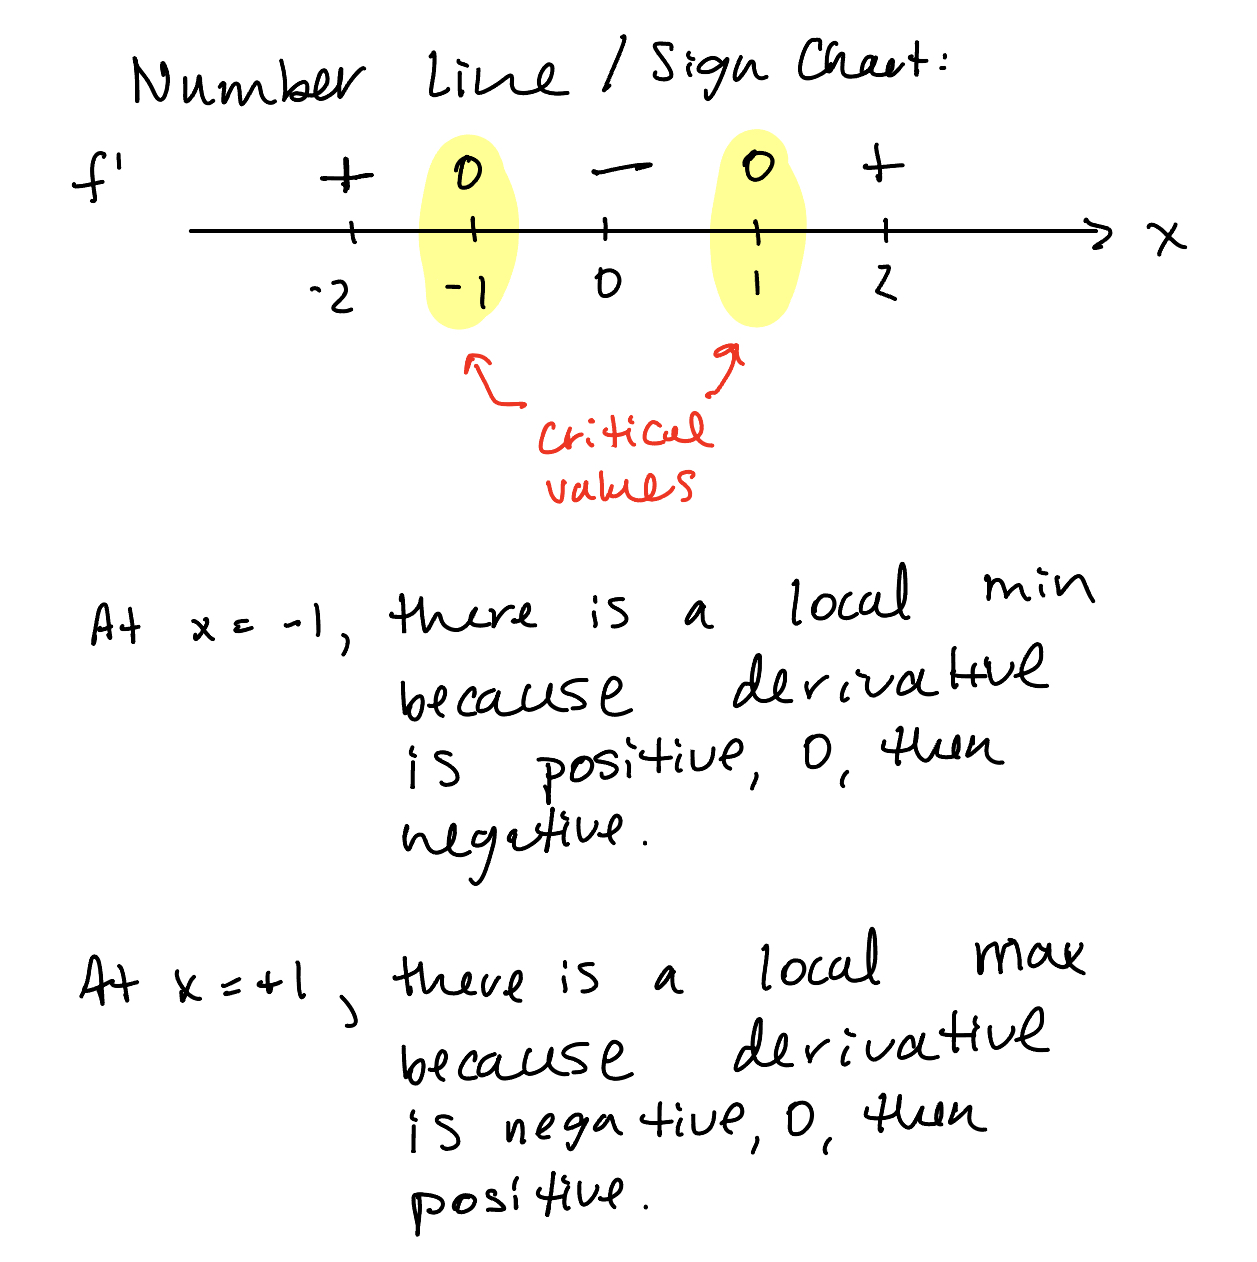 Number Line / Sign Chart:
f' + 0 — 0 + 
-2 -1 0 1 2 x
critical
values
At x = -1, there is a local min
because derivative
is positive, 0, then
negative.
At x = +1, there is a local max
because derivative
is negative, 0, then
positive.